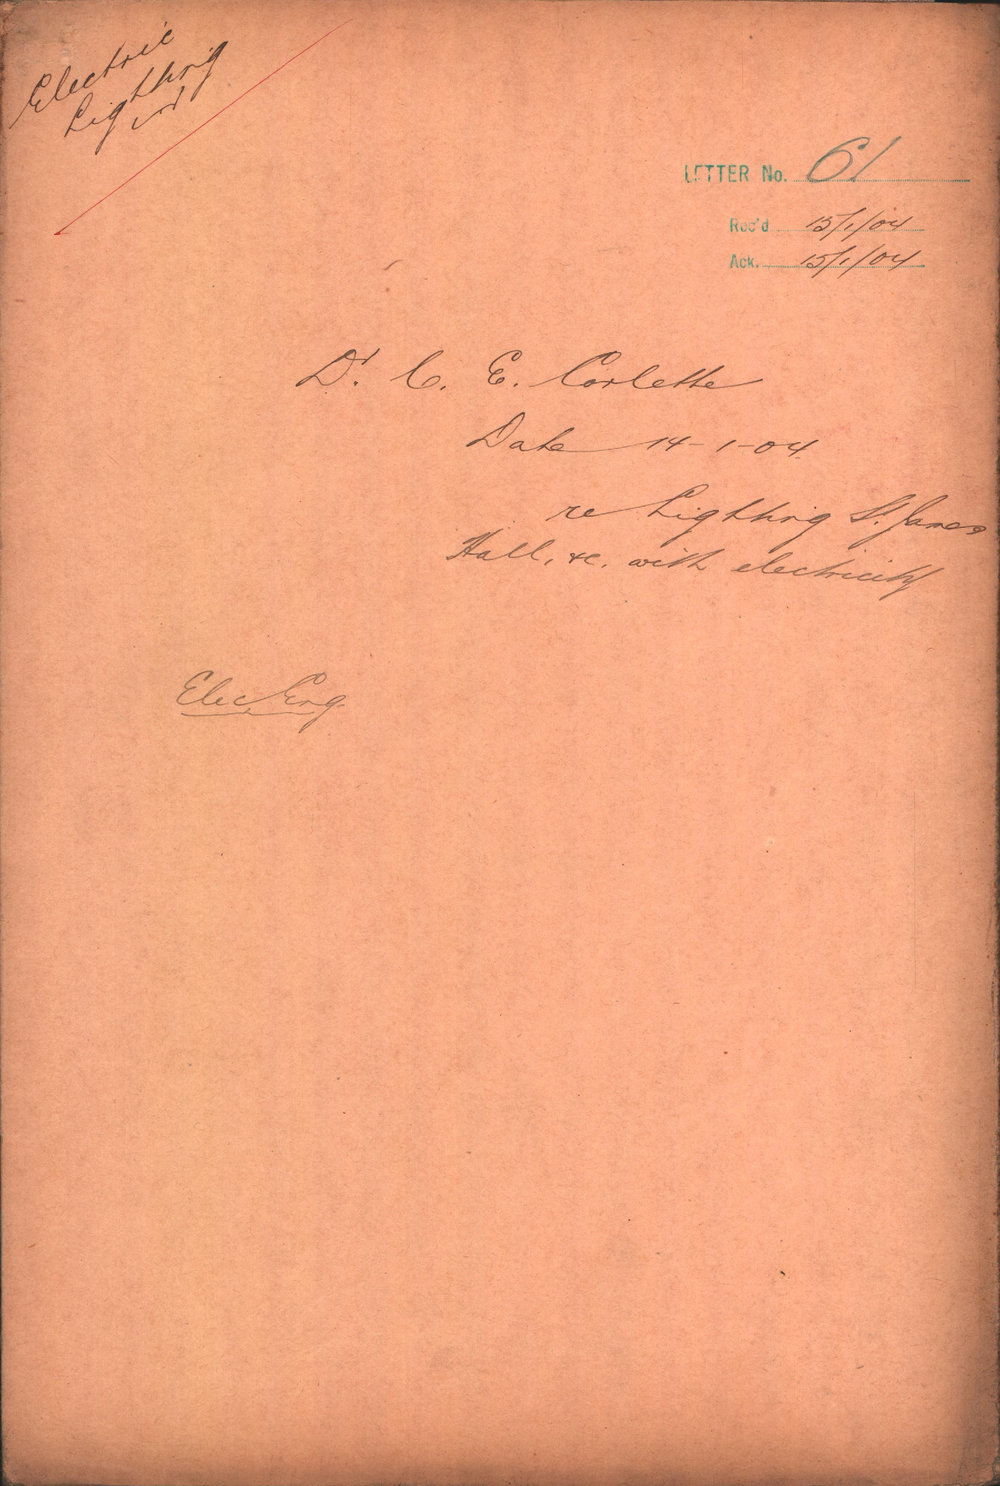 Electric
Lighting
LETTER No. 61
Rec'd 15/1/04
Ack. 15/1/04
Dr. C. E. Corlette
Date 14-1-04
re Lighting St. James
Hall, &c. with electricity
Elec. Eng.